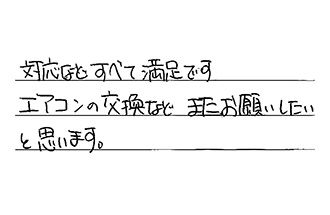 対応などすべて満足です
エアコンの交換など またお願いしたい
と思います。